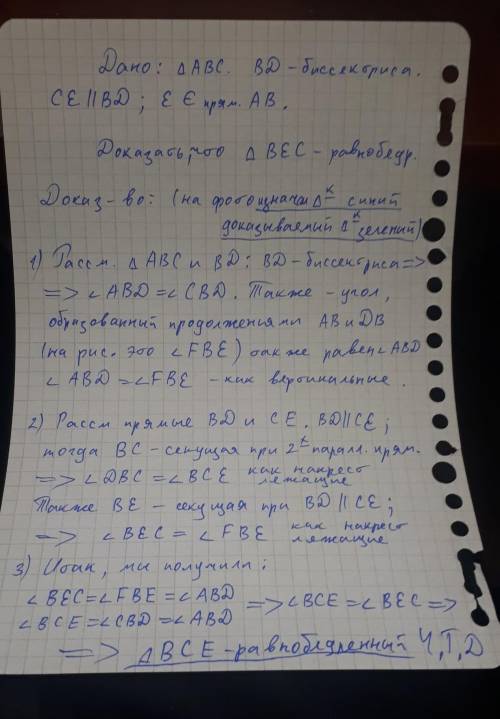 Дано: △ABC. BD-биссектриса.
CE∥BD; E ∈ прям. AB.
Доказать, что △BEC-равнобедр.
Доказ-во: (на фото изнач △к синий
доказываемий △к зелений)
1) Рассм. △ABC и BD: BD-биссектриса =>
=> ∠ABD=∠CBD. Также - угол,
образованний продолженями AB и DB
(на рис. это ∠FBE) также равен ∠ABD
∠ABD=∠FBE - как вертикальные.
2) Рассм прямые BD и CE. BD∥CE;
тогда BC-секущая при 2х паралл. прям.
=> ∠DBC=∠BCE как накрест лежащие
Также BE - секущая при BD∥CE;
=> ∠BEC = ∠FBE как накрест лежащие
3) Итак, ми получили:
∠BEC=∠FBE=∠ABD
∠BCE=∠CBD=∠ABD => ∠BCE=∠BEC =>
=> △BCE-равнобедренный Ч,Т,Д